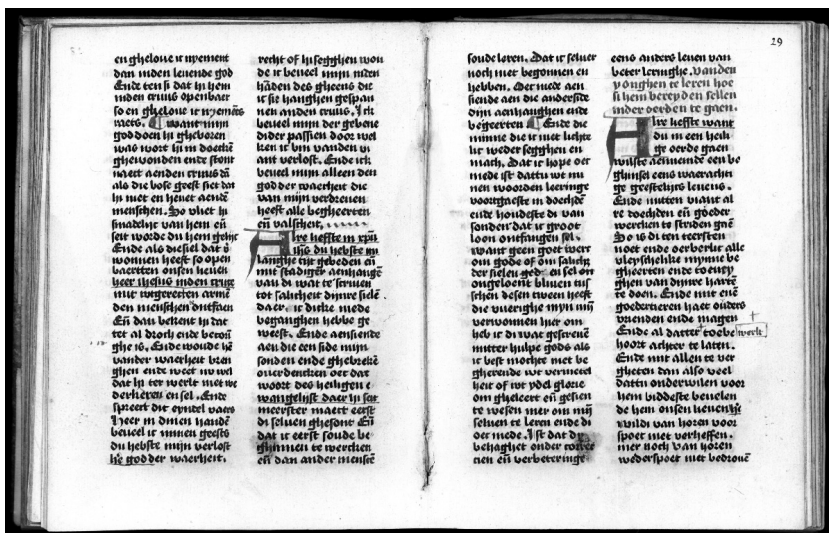 en ghelove ic nyement
dan inden levende god
Ende ten si dat hi hem
inden cruus openbaer
so en ghelove ic nyemēts
raets. Want mijn
god doen hi ghehoren
was wort hi in doeckē
ghewonden ende stont
naect aenden cruus dā
als die bose geest siet dat
hi niet en hevet aendē
menschen. So vliet hi
van hem eñ
seit woede du hem gelijc
Ende als die siel dat v
wonnen heeft so open
baertten onsen heven
heer ihesus inden cruce
mit wtgerecten armē
den menschen ontfaen
Eñ dan bekent hi dat
tet al droch ende bedrou
ghe is. Ende woude hē
vander waerheit bren
ghen ende weet nu wel
dat hi ter werlt met we
derkeren en sel. Ende
spreect dit eyndel vaers
Heer in dinen handē
beveel ic minen geests
du hebste mijn verlost
here god der waerheit.
recht of hi segghen wou
de ic beveel mijn inden
hāden des gheens die
ic sie hanghen gespan
nen anden cruus. Ick
beveel mijn der gebene
dider passien door wel
ken ic bin vanden vi
ant verlost. Ende ick
beveel mijn alleen den
god der waerheit die
van mijn verdreven
heeft alle begheerten
eñ valscheit.
Alre liefste in xpū
ihū du hebste mi
langhe tijt gebeden eñ
mit stadiger aenhangē
van di wat te scriven
tot salicheit dijnre sielē
daer ic dicke mede
beganghen hebbe ge
weest. Ende aensiende
aen die een side mijn
sonden ende ghebrekē
overdencken oec dat
woort des heiligen e
wangelijst daer hi seit
meester maect eerst
di selven ghesont Eñ
dat ic eerst soude be
ghinnen te wercken
eñ dan ander menschē
soude leren. Dat ic selver
noch niet begonnen en
hebben. Oec mede aen
siende aen die anderside
dijn aenhanghen ende
begeerten Ende die
minne die ic niet lichte
lic weder segghen en
mach. Dat ic hope oec
mede ist dattu wt mi
nen woorden leeringe
voortgaeste in doechdē
ende houdeste di van
sonden dat ic groot
loon ontfangen sel.
want geen goet doer
om gode of om salich
der sielen ged en sel on
ongeloent bliven tus
schen desen tween heeft
die vuerighe mijn mij
verwonnen hier om
heb ic di wat gescreven
mitter hulpe gods als
ic best mochte niet be
gherende wt vermetel
heit of wt ydel glorie
om gheleert eñ gesien
te wesen mer om mij
selven te leren ende di
oec mede. Ist dat dy
behaghet onder correc
cien eñ verbeteringe
29
eens anders leven van
beter leringhe. vanden
yonghen te leren hoe
si hem bereyden sellen
inder oerden te gaen.
Alre liefste want
du in een heili
ge oerde gaen
wilste aennemende een be
ghinsel eens waerachti
ge geestelijcs levens.
Ende mitten viant al
re doechden eñ goeder
wercken te striden gaē
So is di ten ieersten
noet ende oerberlic alle
vleyschelike mynne be
gheerten ende toevey
ghen van dijnre hartē
te doen. Ende mit enē
goedertieren haet ouders
vrienden ende magen
Ende al datter toebe werlt
hoort achter te laten.
Ende mit allen te ver
gheten dan also veel
dattu onderwilen voor
hem biddeste bevelen
de hem onsen lieven he
wildi van horen voor
spoet niet verheffen.
mer noch van horen
wederspoet niet bedroeū